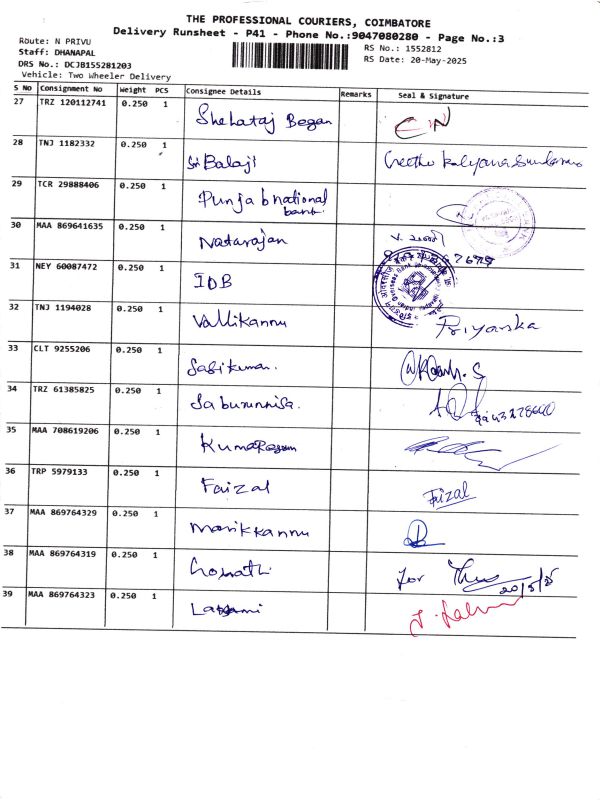 THE PROFESSIONAL COURIERS, COIMBATORE
Delivery Runsheet - P41 - Phone No.:9047080280 - Page No.:3
Route: N PRIVU
RS No.: 1552812
Staff: DHANAPAL
RS Date: 20-May-2025
DRS No.: DCJB155281203
Vehicle: Two Wheeler Delivery
S No Consignment No Weight PCS Consignee Details Remarks Seal & Signature
27 TRZ 120112741 0.250 1 Shehataj Began
28 TNJ 1182332 0.250 1 Sri Balaji
29 TCR 29888406 0.250 1 Punjab national
bank.
30 MAA 869641635 0.250 1 Natarajan
31 NEY 60087472 0.250 1 IOB
32 TNJ 1194028 0.250 1 Vallikannu Priyanka
33 CLT 9255206 0.250 1 Sasikumar.
34 TRZ 61385825 0.250 1 Saburunnisa.
35 MAA 708619206 0.250 1
36 TRP 5979133 0.250 1 Faizal Faizal
37 MAA 869764329 0.250 1 Manikkannu
38 MAA 869764319 0.250 1 Gomathi for
20/5/25
39 MAA 869764323 0.250 1